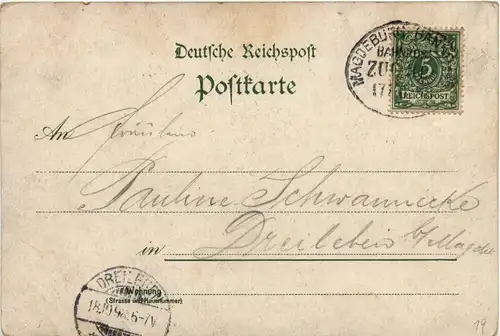 Deutsche Reichspost
Postkarte
MAGDEBURG
BAHNPOST
ZUG
5
REICHSPOST
An Fräulein
Pauline Schwannecke
in Dreileben b/Magdeb
Wohnung
(Strasse und Hausnummer)
DREILEBEN
19